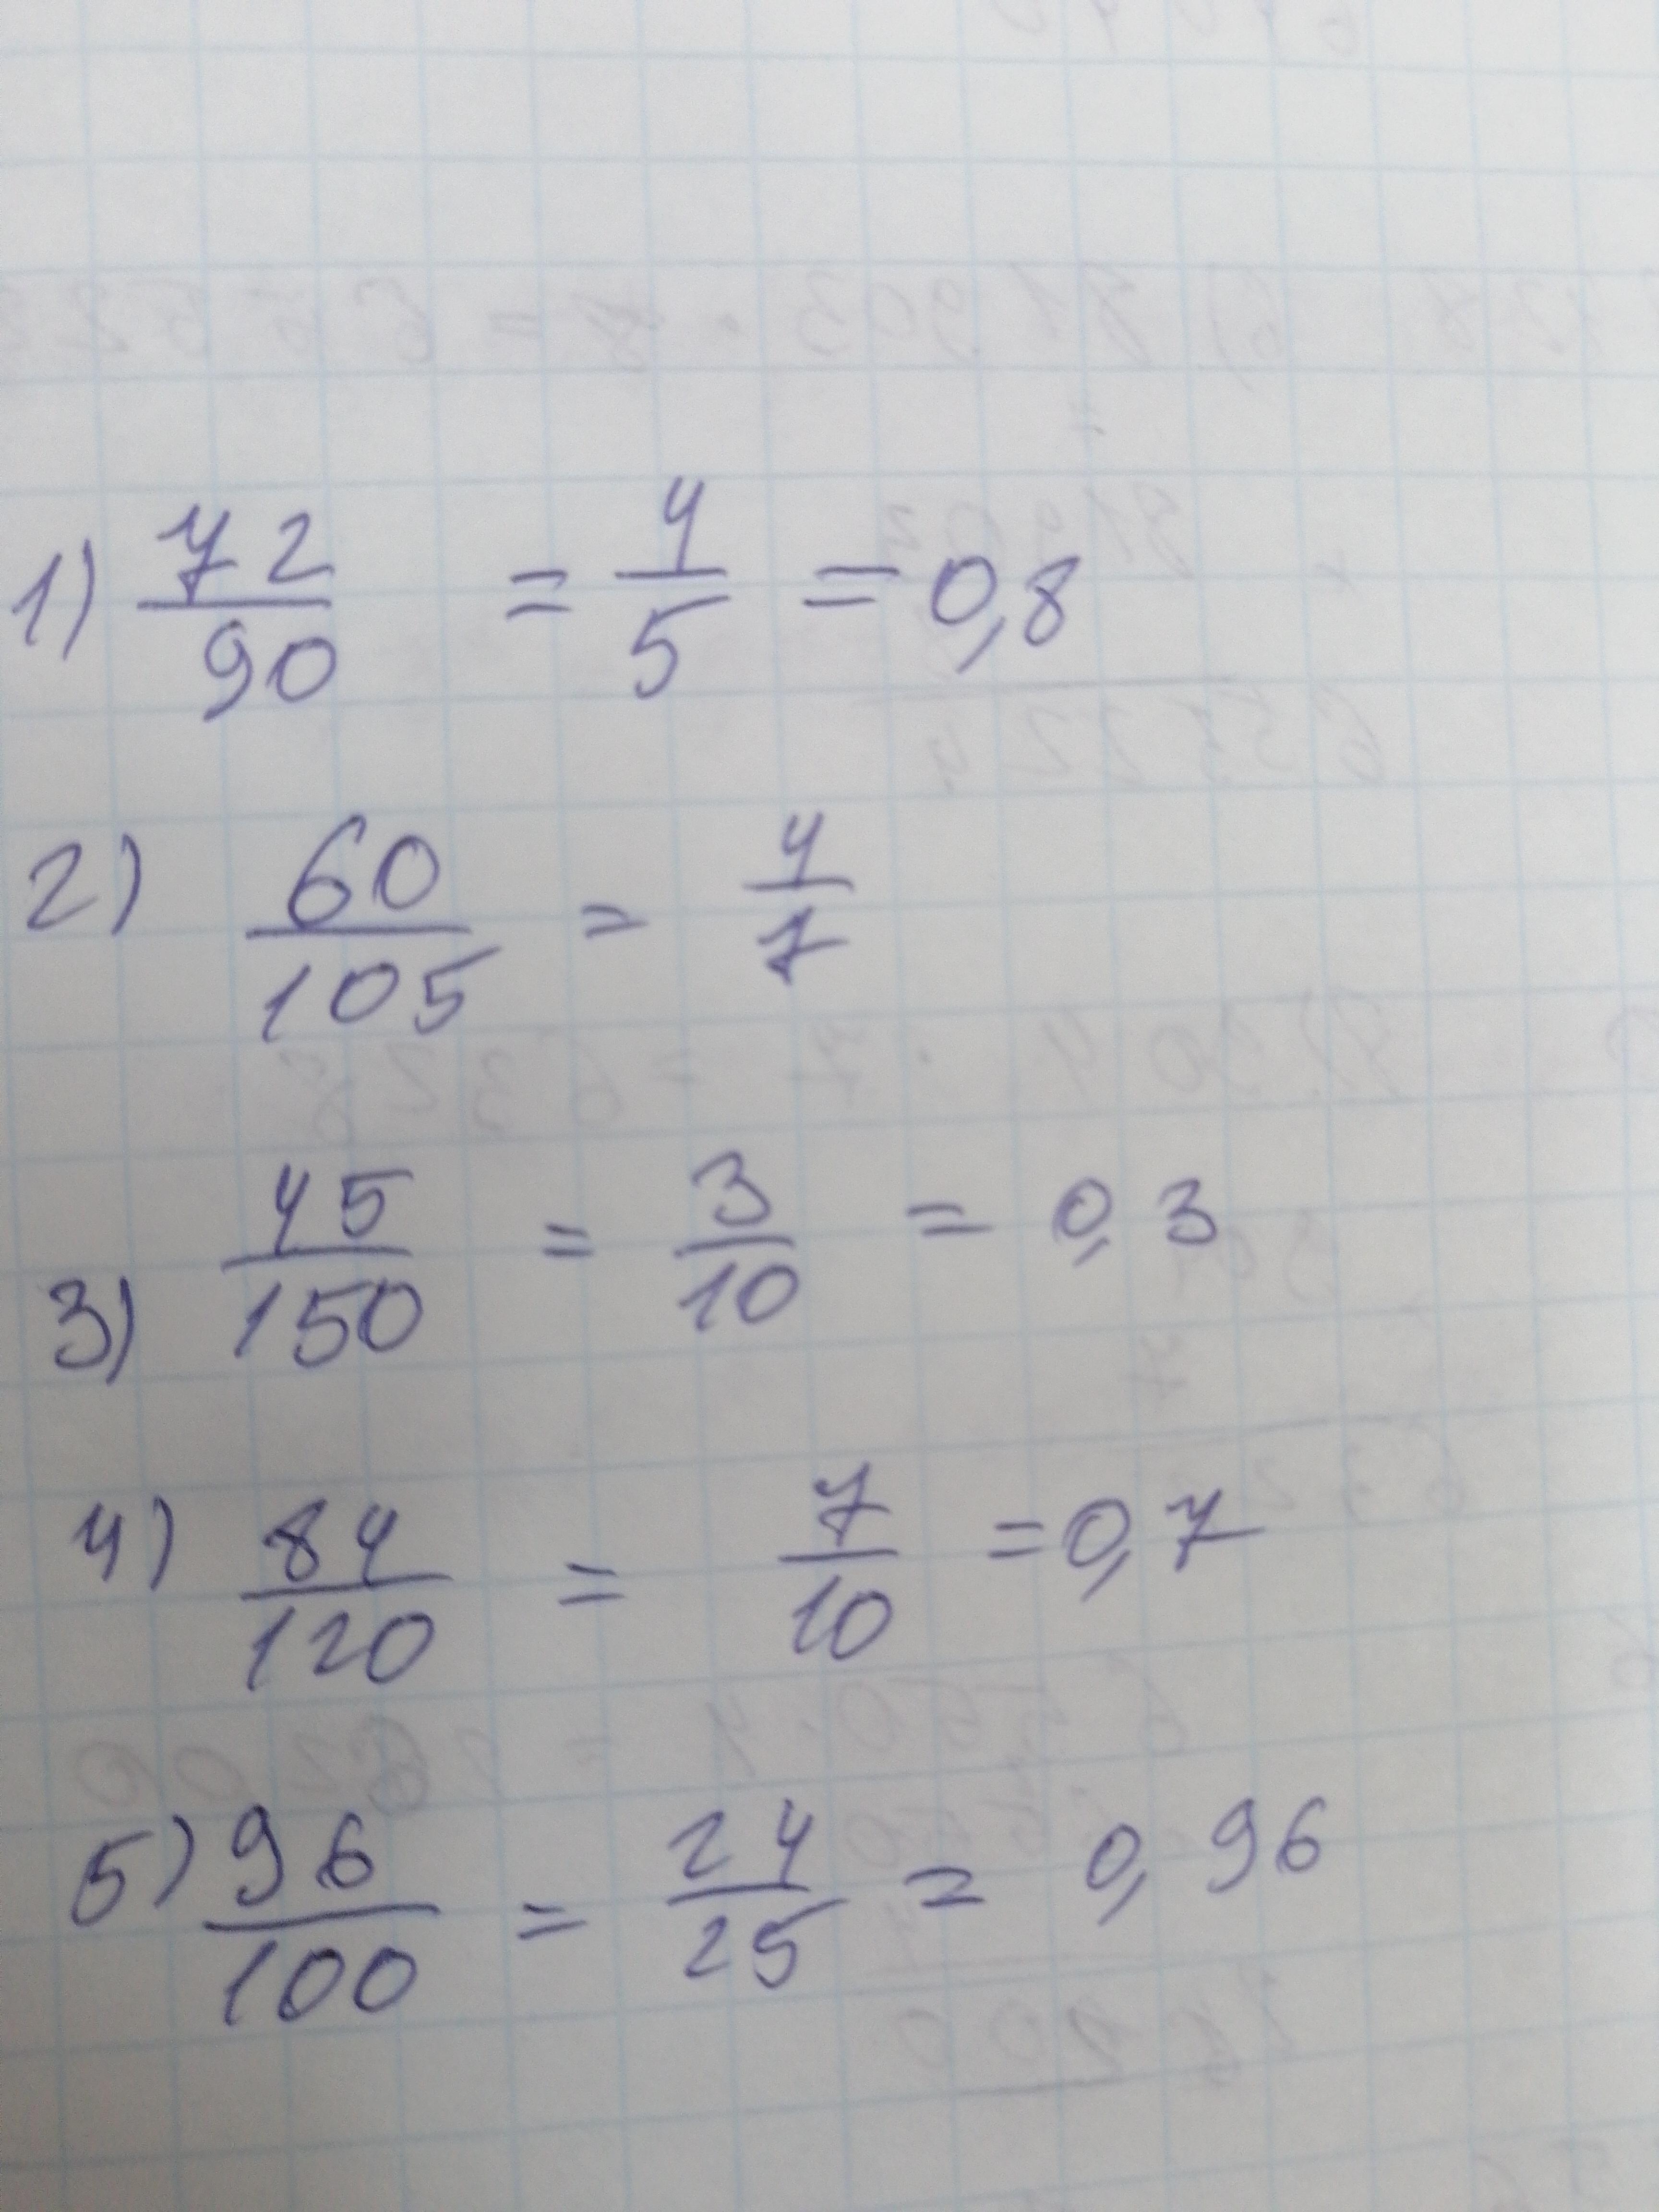 1) 72/90 = 4/5 = 0,8
2) 60/105 = 4/7
3) 45/150 = 3/10 = 0,3
4) 84/120 = 7/10 = 0,7
5) 96/100 = 24/25 = 0,96